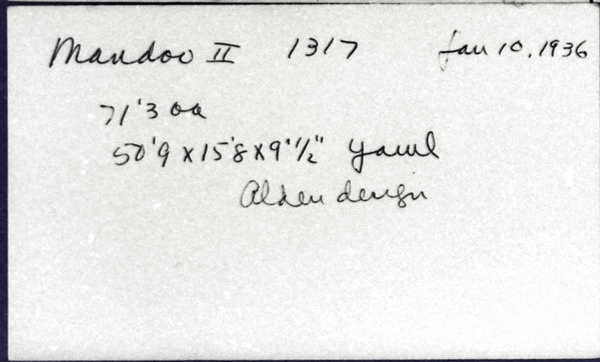 Mandoo II 1317 Jan 10, 1936
71'3 oa
50'9 x 15'8 x 9'1/2" yawl
Alden design